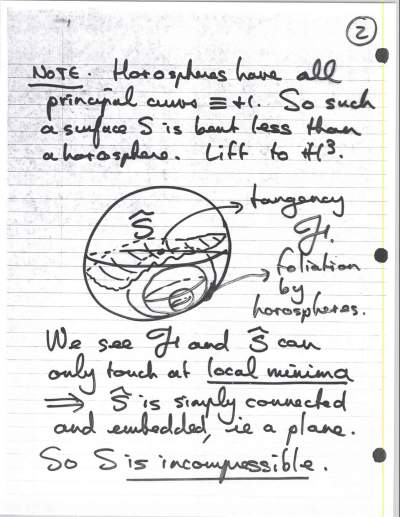 2
NOTE. Horospheres have all
principal curvs ≡ +1. So such
a surface S is bent less than
a horosphere. Lift to ℍ³.
S̃
tangency
ℱ
foliation
by
horospheres.
We see ℱ and S̃ can
only touch at local minima
⟹ S̃ is simply connected
and embedded, ie a plane.
So S is incompressible.